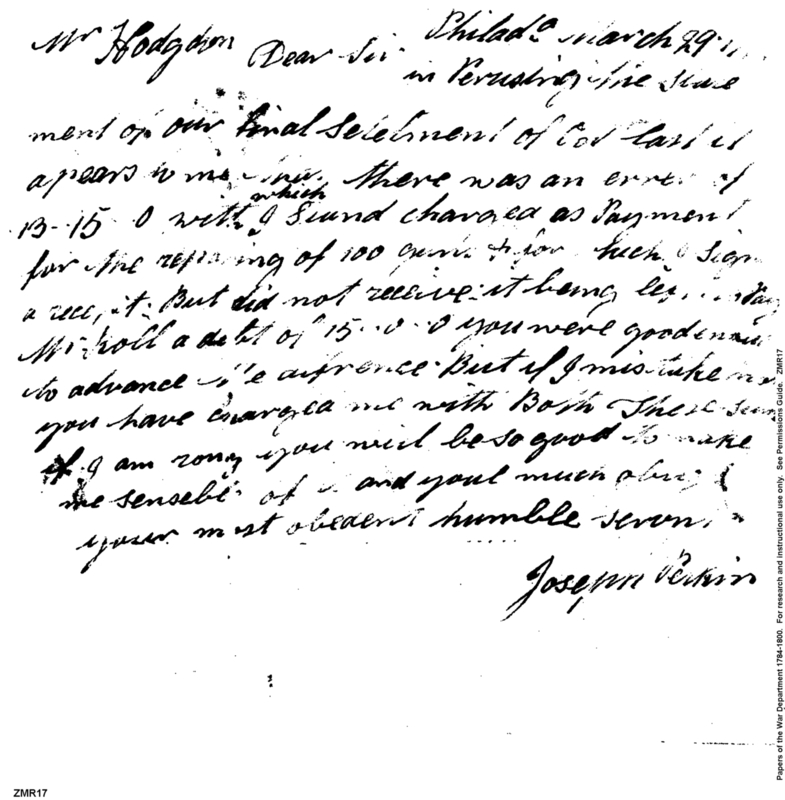 Philad.a March 29
Mr Hodgdon Dear Sir
in Perusing the state
ment of our final Setelment of Oct last it
apears to me there was an error of
13-15-0 with which I Stand charged as Payment
for the repairing of 100 guns & for I Sign
a receipt. But did not receive it being
Mr Noll a debt of 15-0-0 you were good
to advance the difrence But if I mistake
you have Charged me with Both These sums
if I am rong you will be so good to make
me sensebl of it and youl much oblig
your most obedent humble servn
Joseph Perkin
Papers of the War Department 1784-1800. For research and instructional use only. See Permissions Guide. ZMR17
ZMR17